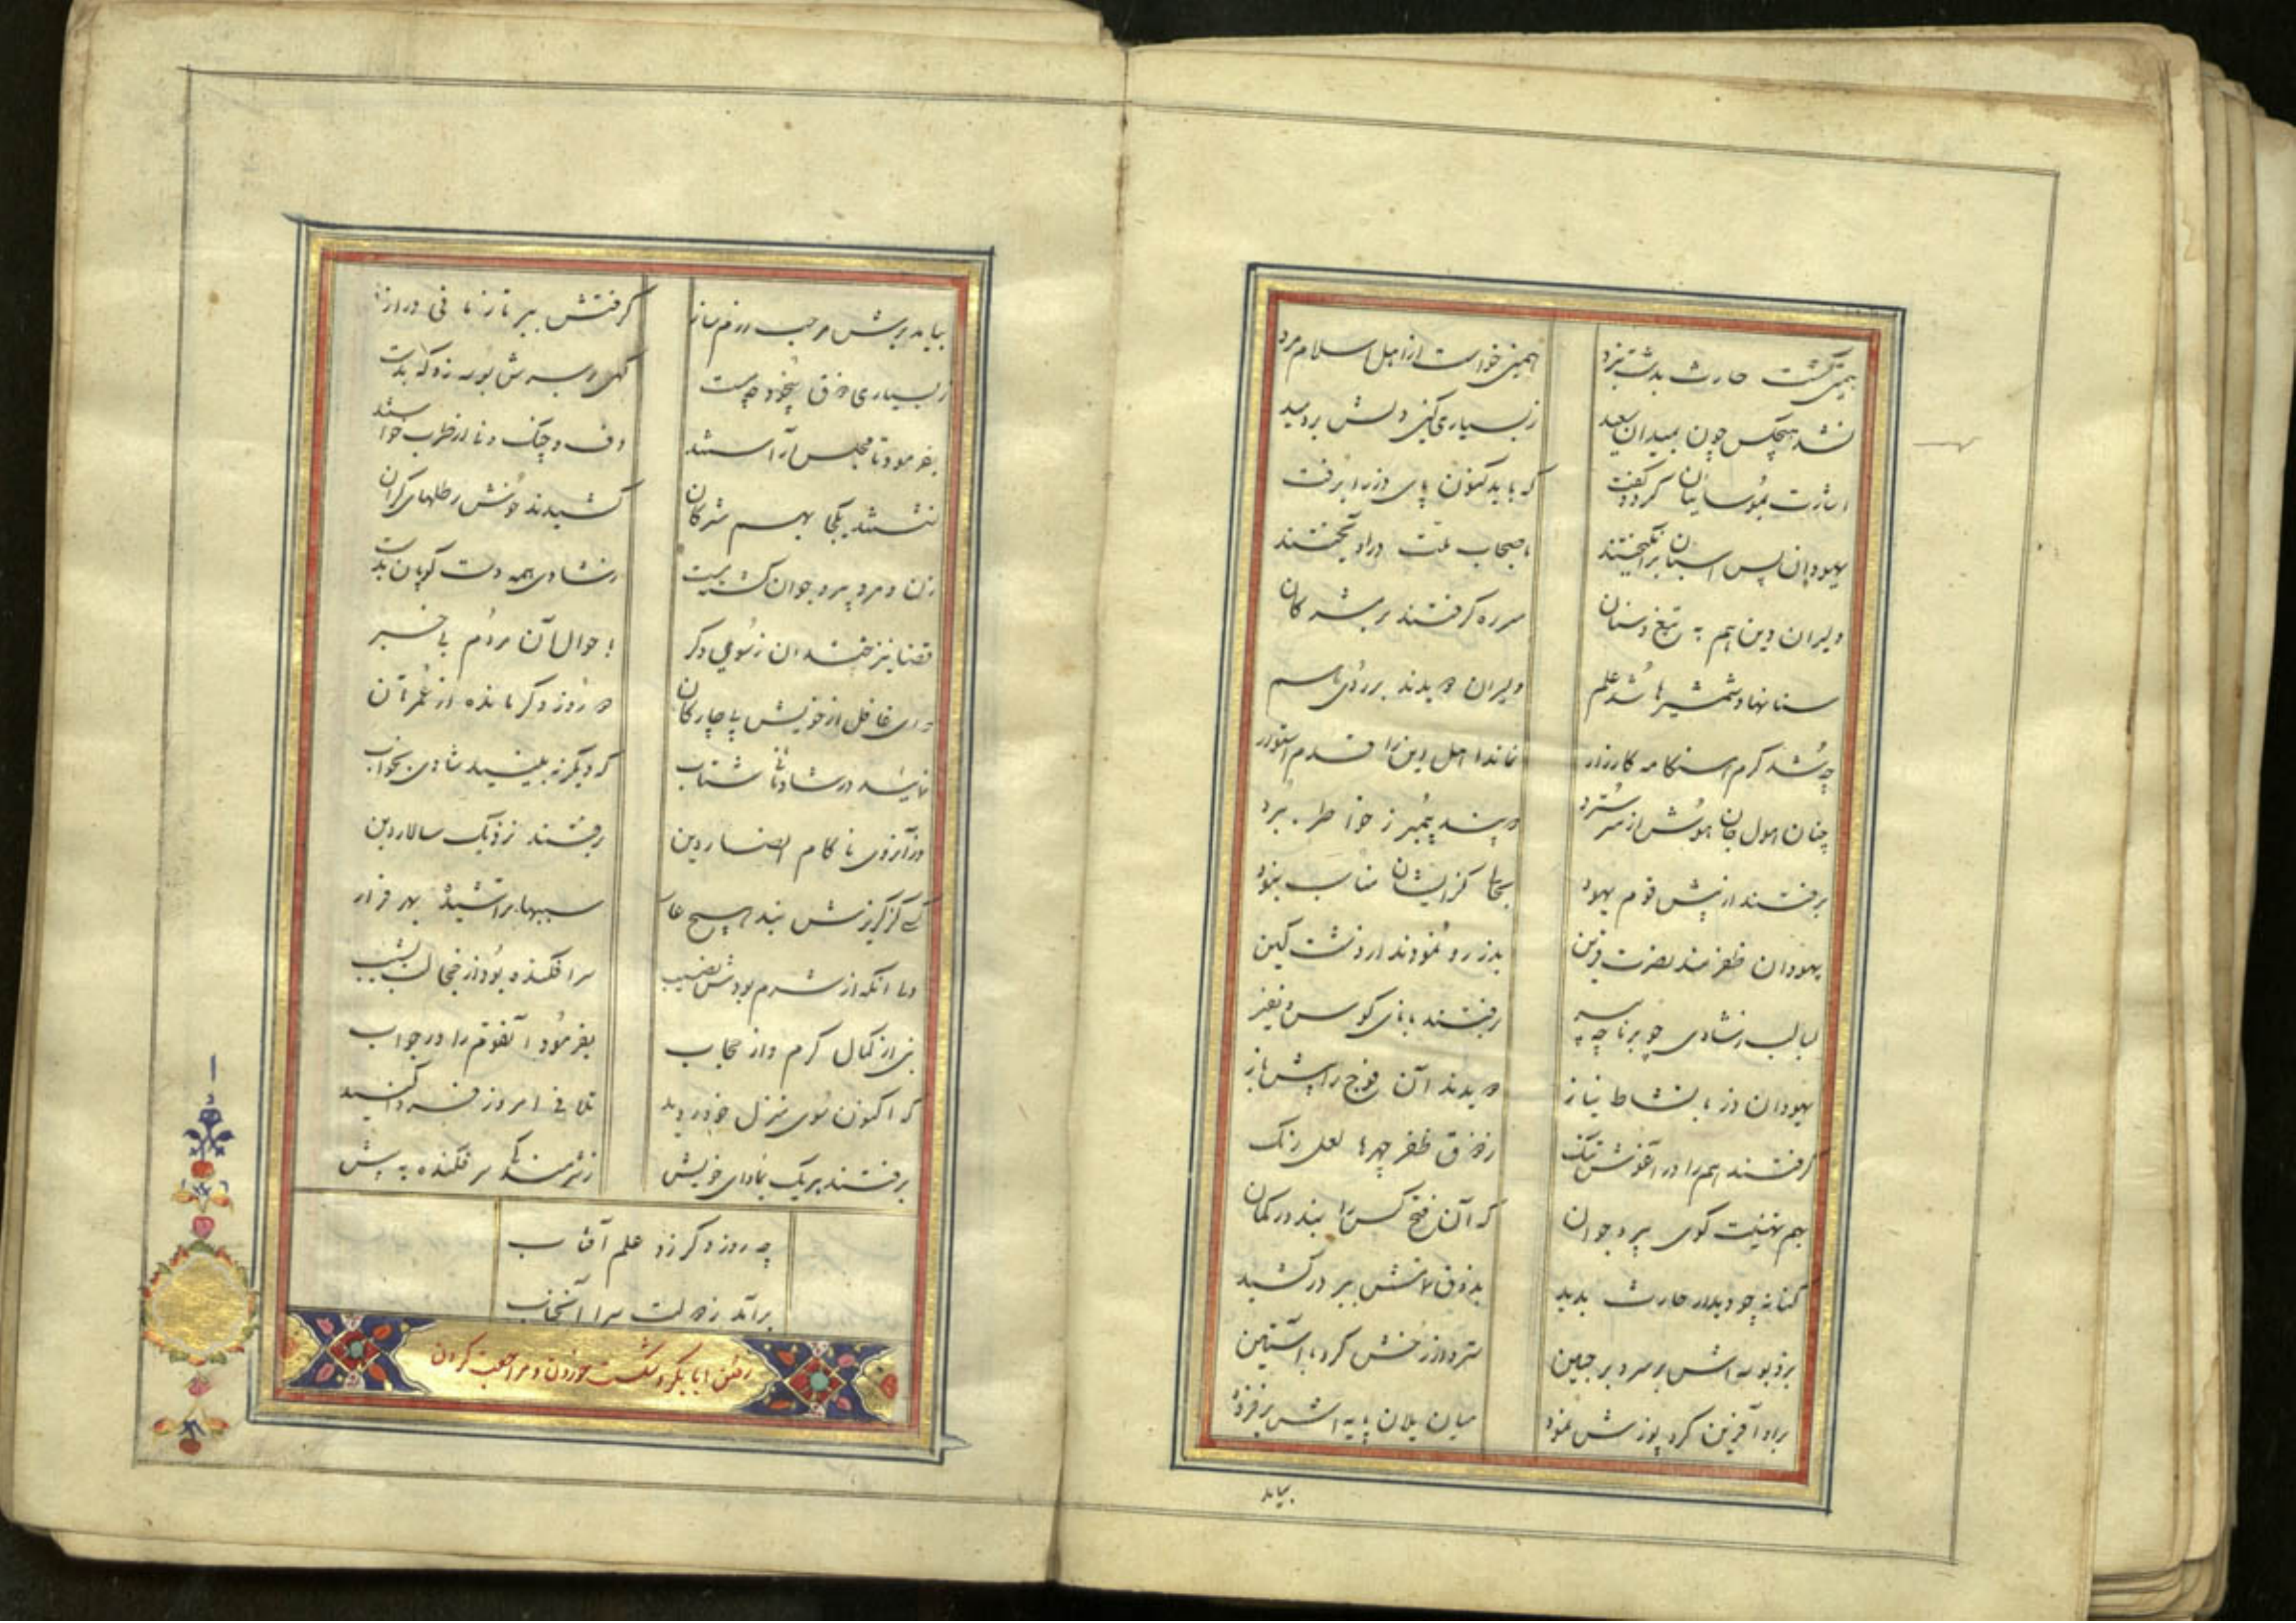 همی گشت حارث بدشت نبرد
همیخواست از اهل اسلام مرد
نشد هیچکس چون بمیدان پدید
ز بسیاری کین دلش بردمید
اشارت بموسائیان کرد و گفت
که باید کنون پای دزد را برفت
یهودیان پس اسبان برانگیختند
باصحاب ملت درآویختند
دلیران دین هم به تیغ و سنان
سر ره گرفتند بر مشرکان
سنانها و شمشیرها شد علم
دلیران دویدند بر روی هم
چه شد گرم هنگامه کارزار
نماند اهل دین را قدم استوار
چنان هول جان هوش از سر سترد
که پند پیمبر ز خاطر ببرد
برفتند از پیش قوم یهود
بجائی کز ایشان مناسب نبود
یهودان ظفرمند نصرت قرین
بدز رو نمودند از دشت کین
لبالب ز شادی چو برنا چه پیر
برفتند با نای کوس و نفیر
یهودان دز با نشاط نیاز
دویدند آن فوج را پیش باز
گرفتند هم را در آغوش تنگ
ز ذوق ظفر چهرها لعل رنگ
بهم تهنیت گوی پیر و جوان
که آن فتح کس را نبد در گمان
کنانه چو دیدار حارث بدید
بذوق دلش ببر درکشید
بزد بوسه‌اش بر سر و بر جبین
سترد از رخش گرد با آستین
برو آفرین کرد پوزش نمود
میان یلان پایه اش برفزود
بیامد
بیامد برش مرحب رزم ساز
گرفتش ببر تا زمانی دراز
ز بسیاری ذوق بیخود چه مست
گهی بر سرش بوسه زد گه بدست
بفرمود تا مجلس آراستند
دف و چنگ و نای از طرب خواستند
نشستند یکجا بهم مشرکان
کشیدند خوش رطلهای گران
زن و مرد پیر و جوان گشته مست
ز شادی همه دست کوبان بدست
قضا نیز خندان ز سوی دگر
باحوال آن مردم بی خبر
که ای غافل از خویش بیچارگان
دو روز دگر مانده از عمرتان
نمائید در شادیتان شتاب
که دیگر نه بینید شادی بخواب
وز آنروی ناکام انصار دین
برفتند نزدیک سالار دین
کسی کز گریزش نبد هیچ عار
سببها تراشید بهر فرار
ولی آنکه از شرم بودش نصیب
سرافکنده بود از خجالت بشیب
نبی از کمال کرم وز حجاب
بفرمود آنقوم را در جواب
که اکنون سوی منزل خود روید
تلافی امروز فردا کنید
برفتند هر یک بماوای خویش
ز شرمندگی سر فکنده به پیش
چه روز دگر زد علم آفتاب
برآمد ز دولت سرا آنجناب
رفتن ابابکر و شکست خوردن و مراجعت کردن